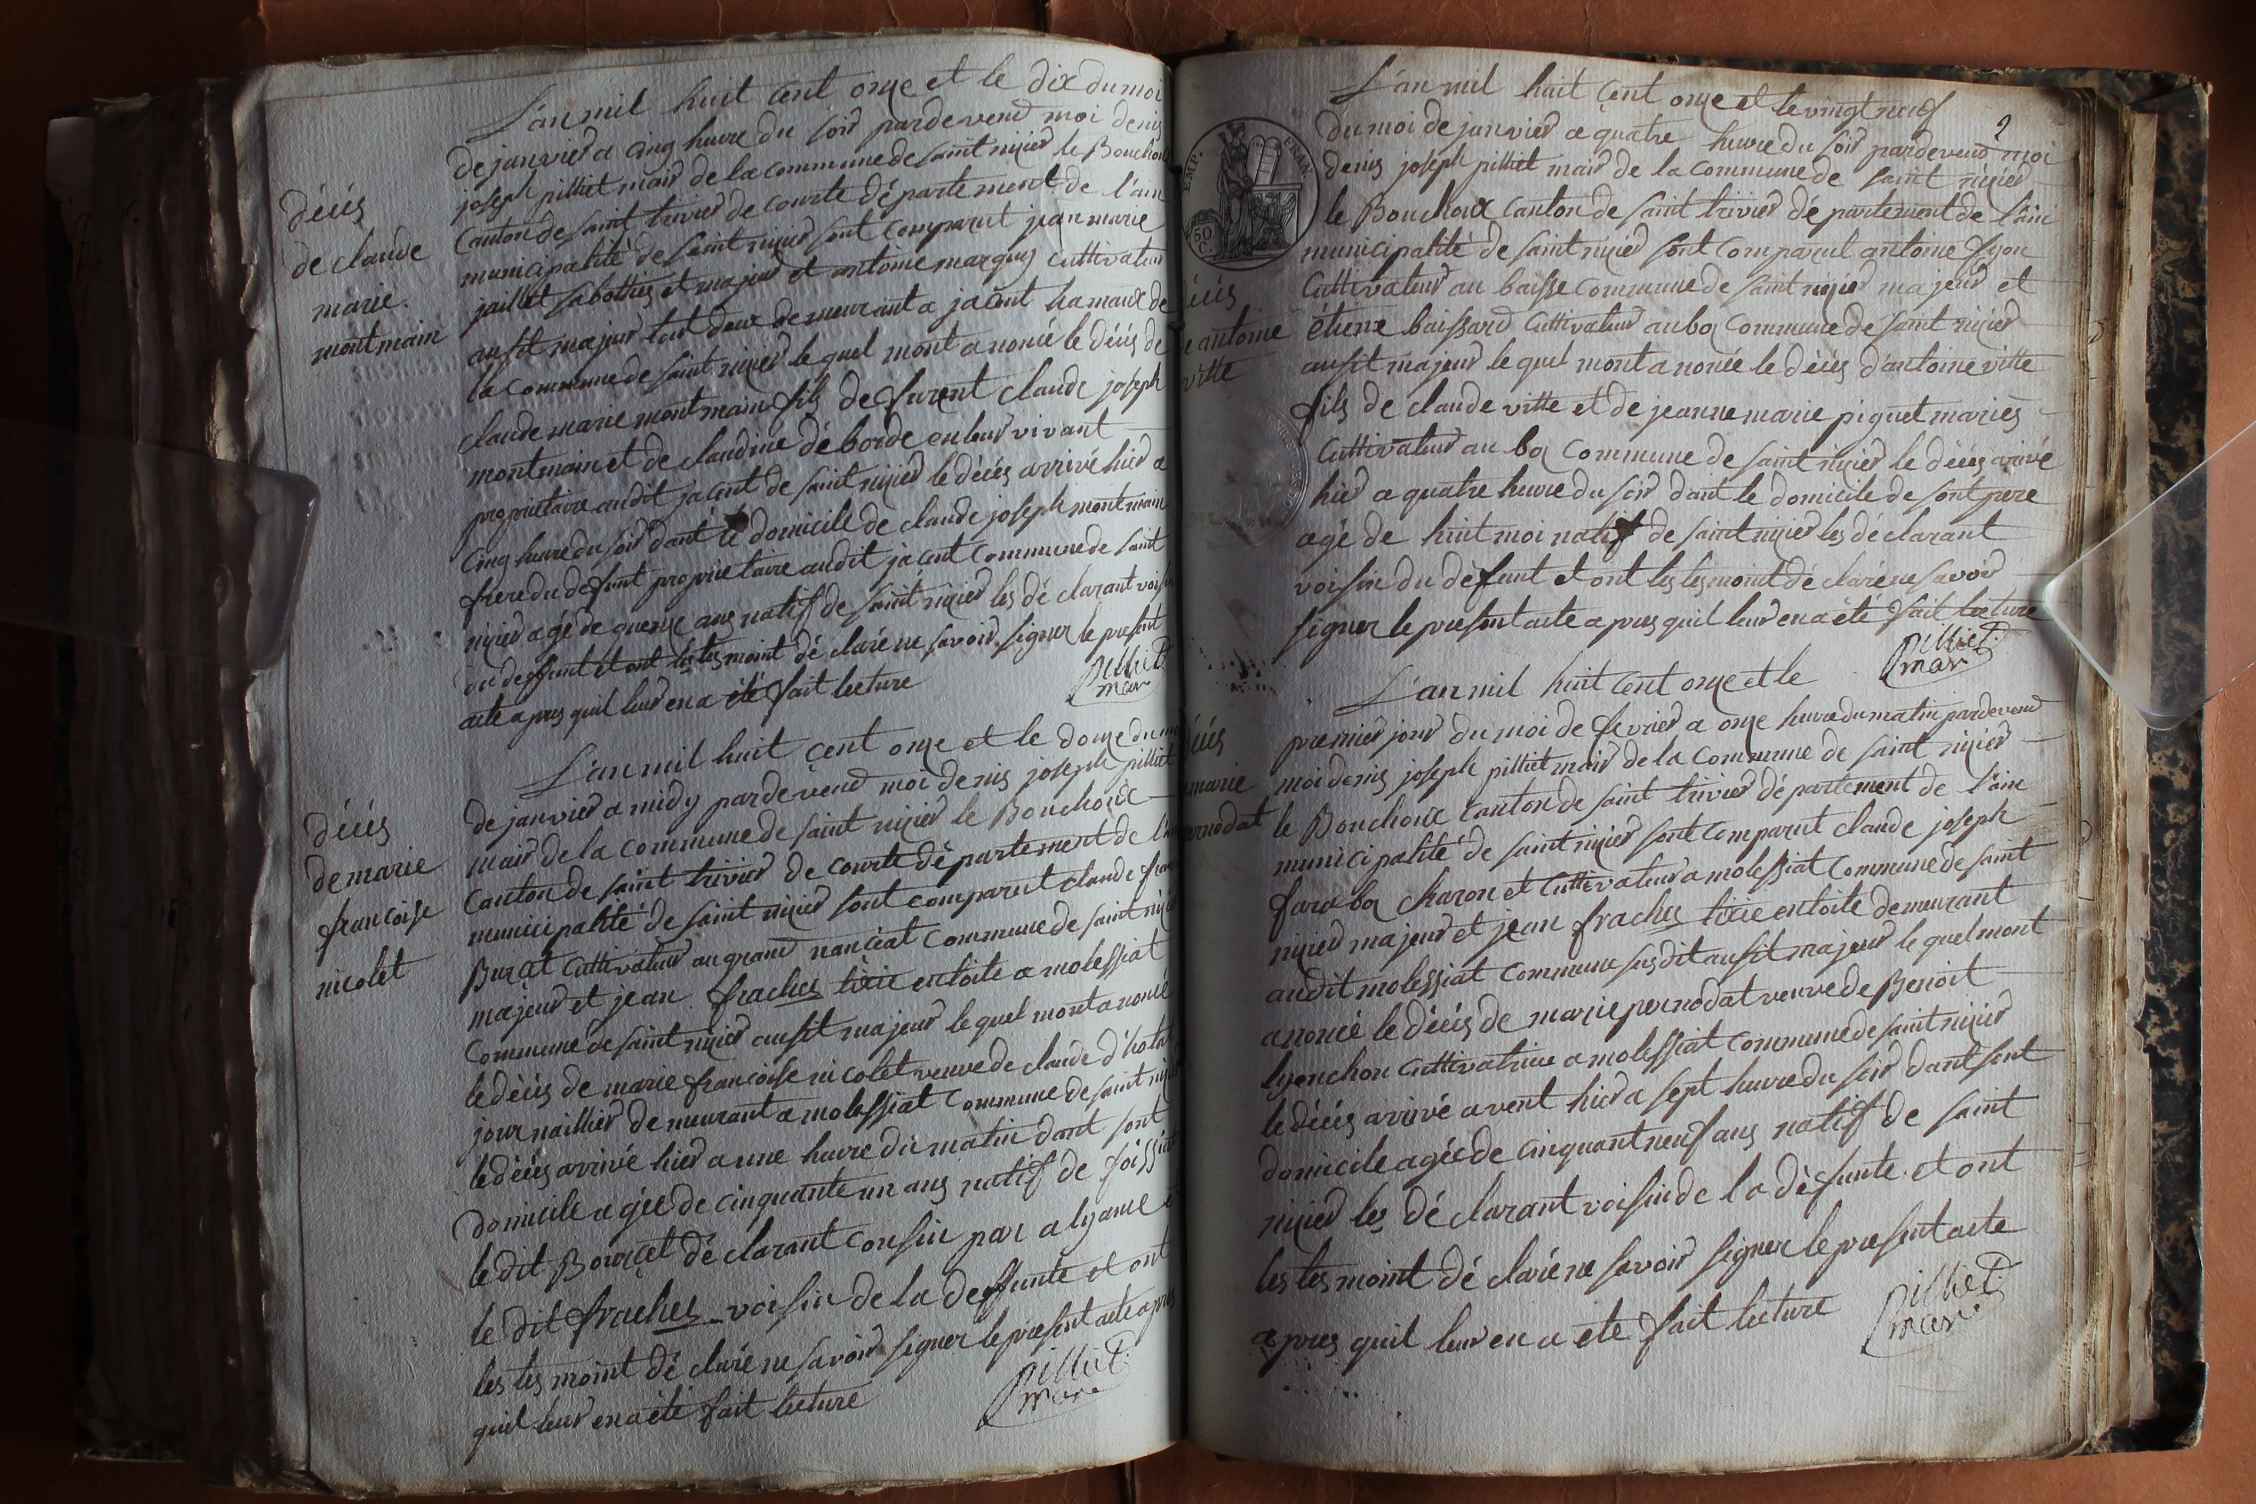 L'an mil huit cent onze et le dix du moi
de janvier a cinq heure du soir pardevend moi denis
joseph pilliet mair de la commune de saint nizier le Bouchoux
Canton de saint trivier de courte département de l'ain
municipalité de saint nizier sont comparut jean marie
jaillet sabottier et majeur et antoine marquis cultivateur
ausit majeur tout deux demeurant a jacent hamaux de
la commune de saint nizier le quel mont anoncé le décés de
claude marie montmain fils de furent claude joseph
montmain et de claudine déborde en leur vivant
proprietaire audit jacent de saint nizier le décés arrivé hier a
cinq heure du soir dant le domicile de claude joseph montmain
frere du defunt proprietaire audit jacent commune de saint
nizier agé de quenze ans natif de saint nizier les déclarant voisin
du deffunt et ont les tesmoint déclaré ne savoir signer le present
acte apres quil leur en a été fait lecture
pilliet
mair
décés
de claude
marie
montmain
L'an mil huit cent onze et le douze du moi
de janvier a midy pardevend moi denis joseph pilliet
mair de la commune de saint nizier le Bouchoux
Canton de saint trivier de courte département de l'ain
municipalité de saint nizier sont comparut claude
Burcet cultivateur au grand nanciat commune de saint nizier
majeur et jean fraches tixie en toile a molessiat
commune de saint nizier ausit majeur le quel mont anoncé
le décés de marie françoise nicolet veuve de claude
journaillier demeurant a molessiat commune de saint nizier
le décés arrivé hier a une heure du matin dant sont
domicile agée de cinquante un ans natif de foissiat
le dit Bourcet déclarant cousin par alyance
le dit fraches voisin de la deffunte et ont
les tesmoint déclaré ne savoir signer le present acte apres
quil leur en a été fait lecture
pilliet
mair
décés
de marie
françoise
nicolet
2
EMP. FRAN.
50
C
L'an mil huit cent onze et le vingt neuf
du moi de janvier a quatre heure du soir pardevend moi
denis joseph pilliet mair de la commune de saint nizier
le Bouchoux canton de saint trivier département de l'ain
municipalité de saint nizier sont comparut antoine lyon
cultivateur au baisse commune de saint nizier majeur et
étiene baissard cultivateur au boq commune de saint nizier
ausit majeur le quel mont anoncé le décés d'antoine vitte
fils de claude vitte et de jeanne marie piquet mariés
cultivateur au boq commune de saint nizier le décés arivé
hier a quatre heure du soir dant le domicile de sont pere
agé de huit moi natif de saint nizier les déclarant
voisin du défunt et ont les tesmoint déclaré ne savoir
signer le present acte apres quil leur en a été fait lecture
pilliet
mair
décés
antoine
vitte
L'an mil huit cent onze et le
premier jour du moi de fevrier a onze heure du matin pardevend
moi denis joseph pilliet mair de la commune de saint nizier
le Bouchoux canton de saint trivier département de l'ain
municipalité de saint nizier sont comparut claude joseph
faraboq charon et cultivateur a molessiat commune de saint
nizier majeur et jean fraches tixie en toile demeurant
audit molessiat commune susdit ausit majeur le quel mont
anoncé le décés de marie pernodat veuve de Benoit
lyonchon cultivatrice a molessiat commune de saint nizier
le décés arrivé avent hier a sept heure du soir dant sont
domicile agée de cinquant neuf ans natif de saint
nizier les déclarant voisin de la défunte et ont
les tesmoint déclaré ne savoir signer le present acte
apres quil leur en a été fait lecture
pilliet
mair
décés
marie
pernodat